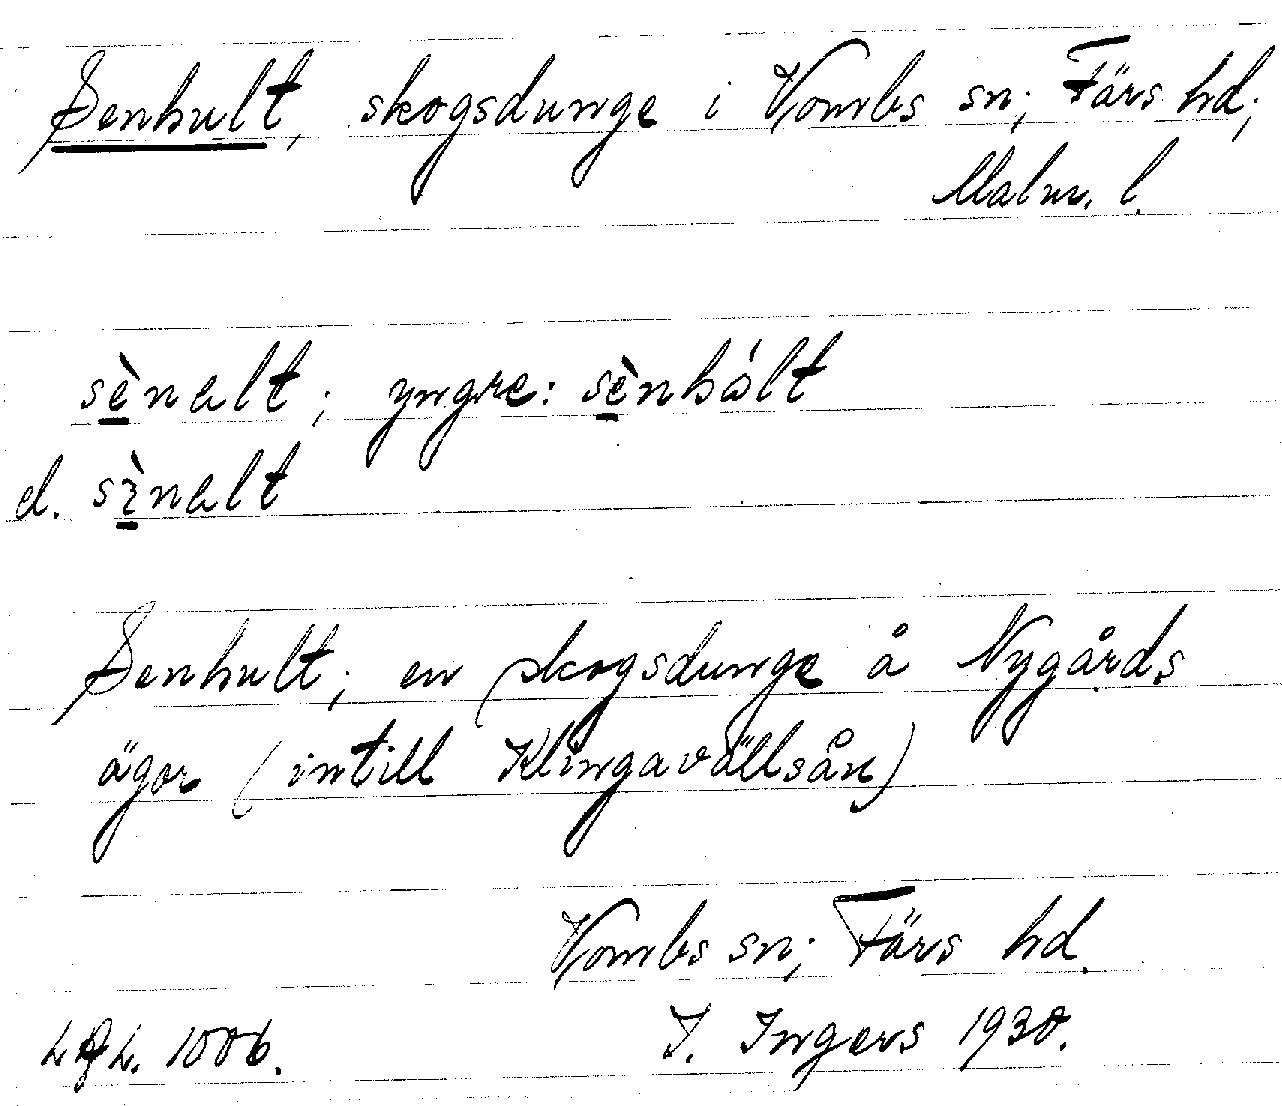 Senhult, skogsdunge i Vombs sn; Färs hd;
Malm. l.
sènalt; yngre: sènhált
el. sìnalt
Senhult; en skogsdunge å Nygårds
ägor (intill Klingavällsån)
Vombs sn; Färs hd.
I. Ingers 1930.
1006.